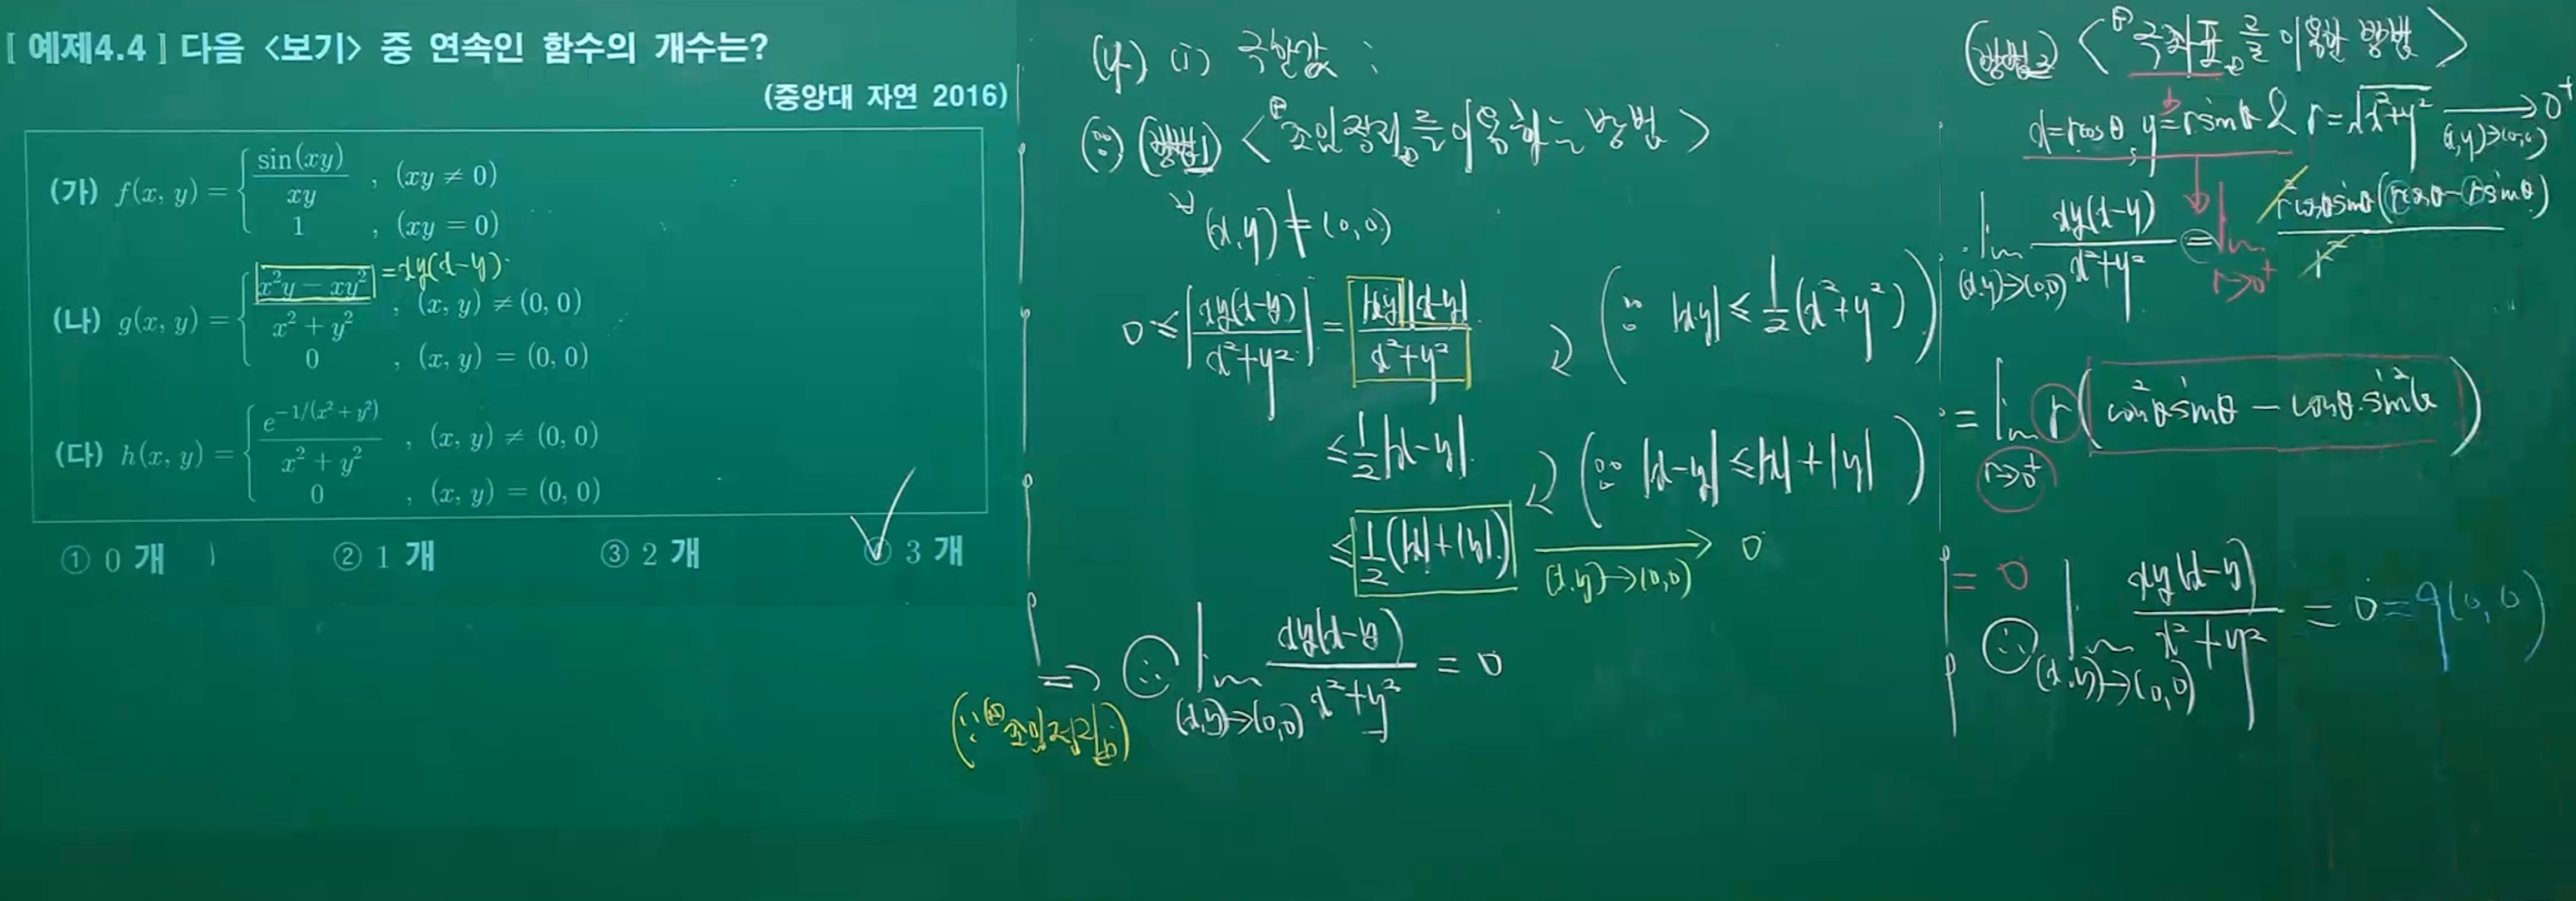 [ 예제4.4 ] 다음 <보기> 중 연속인 함수의 개수는?
(중앙대 자연 2016)
(가) f(x, y) = { sin(xy)/xy , (xy ≠ 0)
1 , (xy = 0)
(나) g(x, y) = { (x²y − xy²)/(x² + y²) , (x, y) ≠ (0, 0)
= xy(x-y)
0 , (x, y) = (0, 0)
(다) h(x, y) = { e^(−1/(x² + y²))/(x² + y²) , (x, y) ≠ (0, 0)
0 , (x, y) = (0, 0)
① 0 개 ② 1 개 ③ 2 개 ④ 3 개
(나) (i) 극한값 :
(∵) (방법1) < 조임정리를 이용하는 방법 >
∀(x,y) ≠ (0,0)
0 ≤ |xy(x-y)/(x²+y²)| = |xy||x-y|/(x²+y²)
(∵ |xy| ≤ 1/2(x²+y²))
≤ 1/2|x-y|
(∵ |x-y| ≤ |x|+|y|)
≤ 1/2(|x|+|y|) → 0
(x,y)→(0,0)
⇒ ∴ lim (x,y)→(0,0) xy(x-y)/(x²+y²) = 0
(∵ 조임정리)
(방법2) < 극좌표를 이용한 방법 >
x=rcosθ, y=rsinθ & r=√(x²+y²) → 0⁺
(x,y)→(0,0)
lim (x,y)→(0,0) xy(x-y)/(x²+y²) = lim r→0⁺ r²cosθsinθ(rcosθ-rsinθ)/r²
= lim r→0⁺ r(cos²θsinθ - cosθ·sin²θ)
= 0
∴ lim (x,y)→(0,0) xy(x-y)/(x²+y²) = 0 = g(0,0)